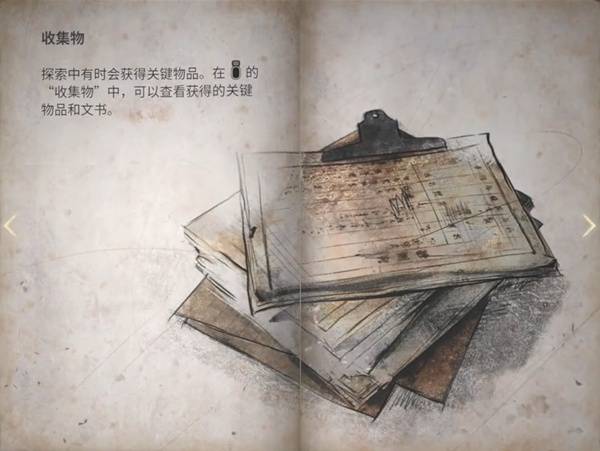 收集物
探索中有时会获得关键物品。在 的
“收集物”中，可以查看获得的关键
物品和文书。